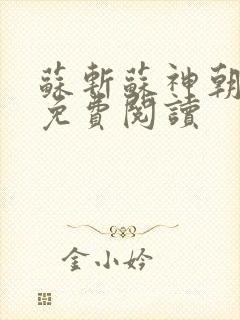 蘇斬蘇神朝
免費閱讀
金小妗